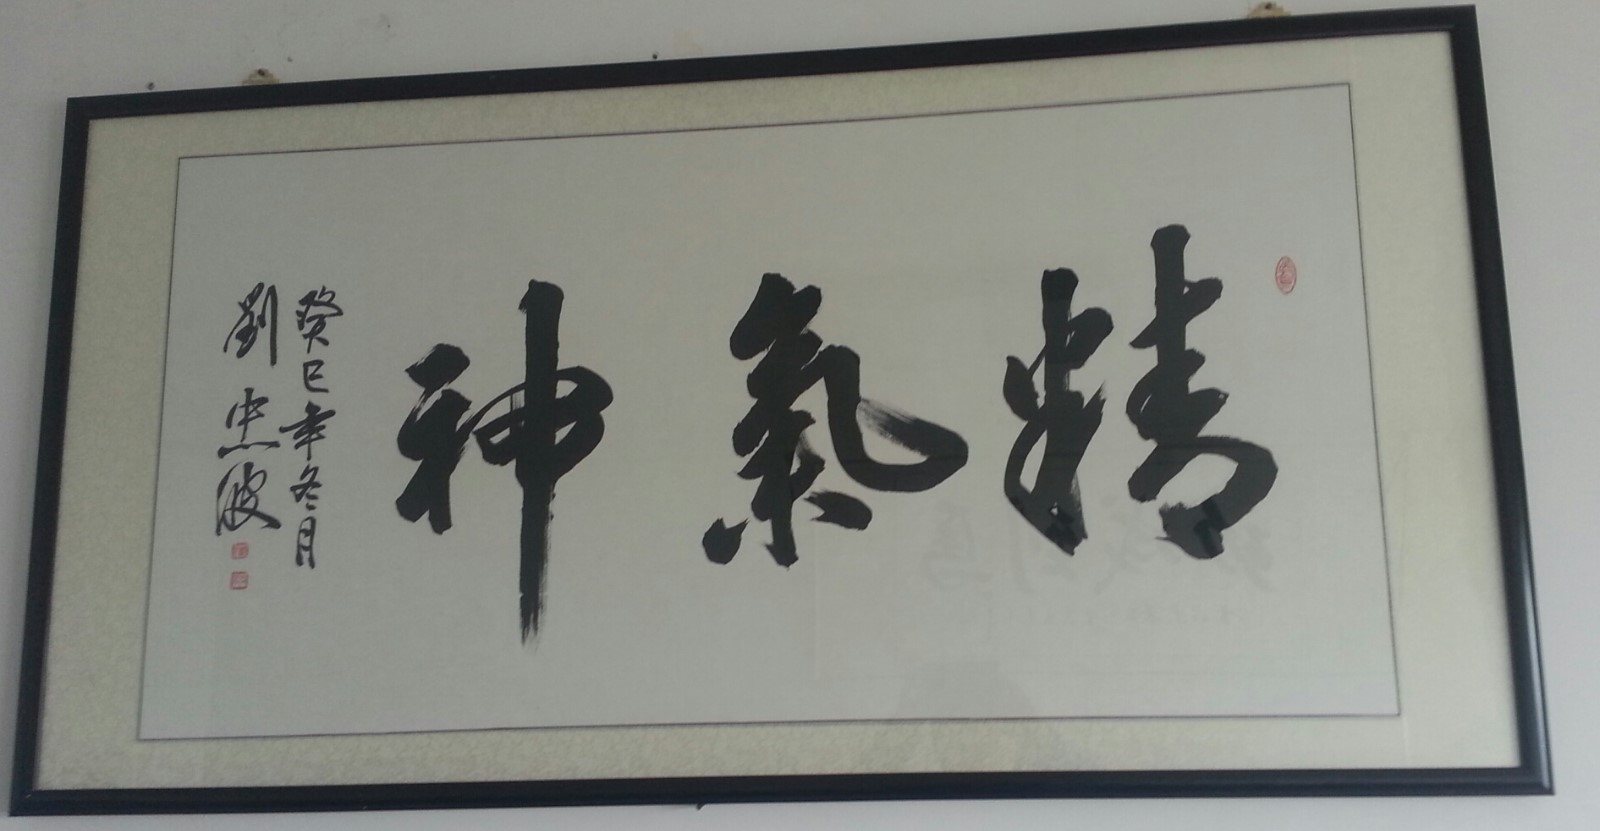 精氣神
癸巳年冬月
劉忠波